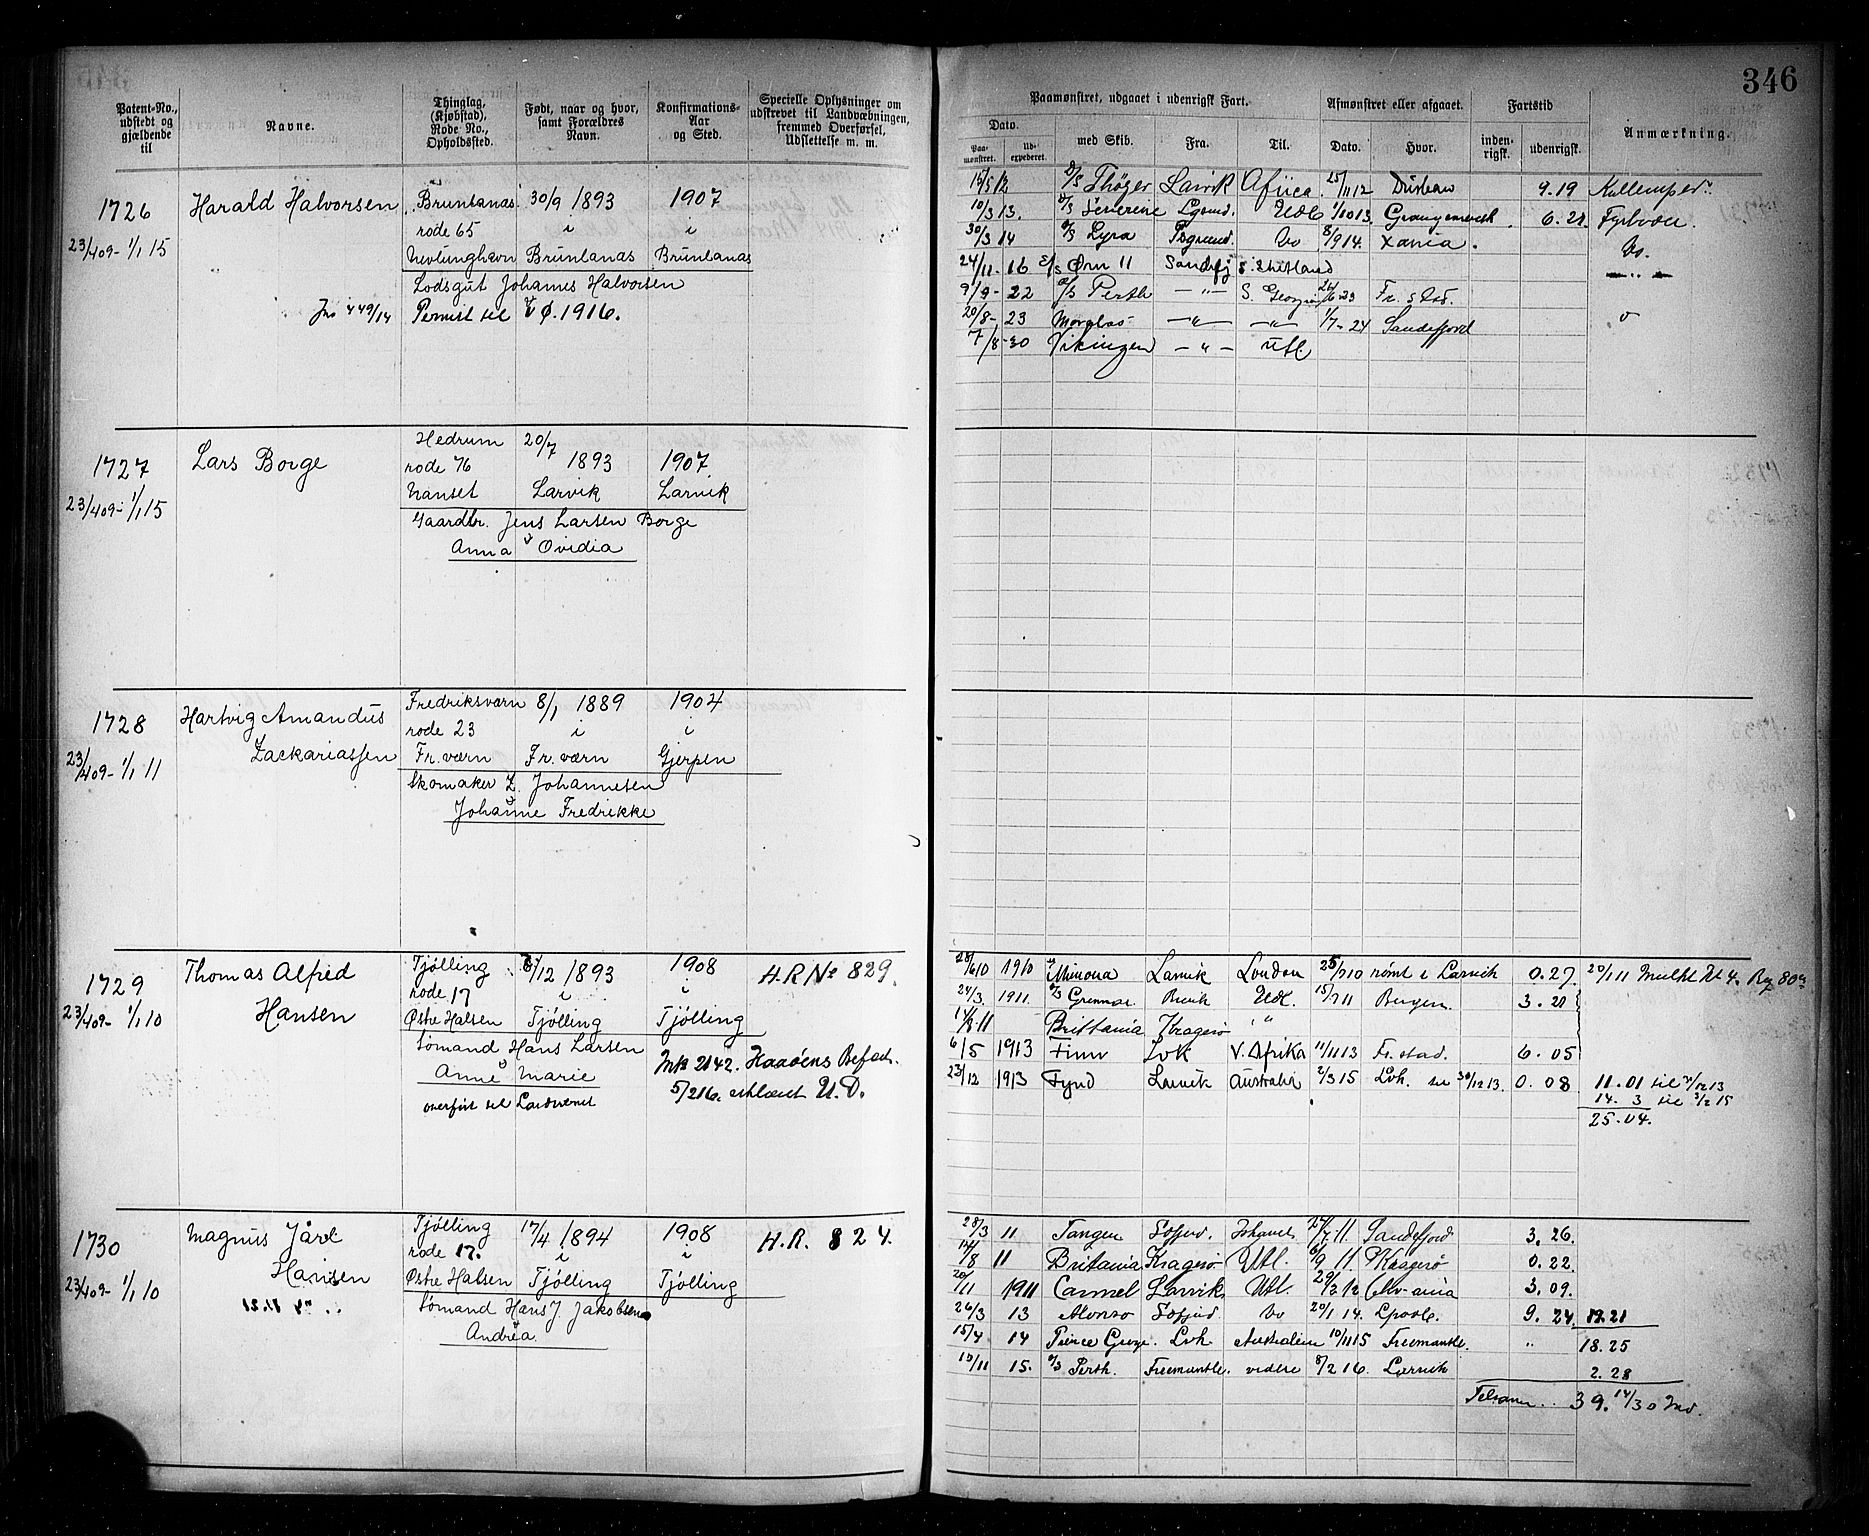 346
Patent-No., udstedt og gjældende til
Navne.
Thinglag, (Kjøbstad), Rode No., Opholdssted.
Født, naar og hvor, samt Forældres Navn.
Konfirmations-Aar og Sted.
Specielle Oplysninger om udskrevet til Landværbningen, fremmed Overførsel, Udslettelse m. m.
Paamønstret, udgaaet i udenrigsk Fart.
Afmønstret eller afgaaet.
Fartstid
Anmærkning.
Dato.
Paa-mønstret. Ud-expederet. med Skib. Fra. Til. Dato. Hvor. inden-rigsk. udenrigsk.
1726 Harald Halvorsen Brunlanas 30/9 1893 1907
rode 65 i i
23/409- 1/1 15 Nevlunghavn Brunlanas Brunlanas
Lodsgut Johannes Halvorsen
Jno 449/14 Permist til 1916.
15/5 12 D/S Thöger Larvik Africa 25/11 12 Durban 9.19
10/3 13. Severene Lgsund. Udl 1/10 13 6.21 Fyrbøder
30/3 14 Lyra Psgrund. Do 8/9 14. Xania. Do.
24/11- 16 S/S Ørn II Sandefj S. Shetland — " —
9/9- 22 Perth — " — S. Georgia Fr. stad.
20/8- 23 — " — — " — 1/7- 24 Sandefjord
7/8- 30 Vikingen — " — Utl
1727 Lars Borge Hedrum 20/7 1893 1907
rode 76
23/409- 1/1 15 Nanset Larvik Larvik
Gaardbr. Jens Larsen Borge
Anna Ovidia
1728 Hartvig Amandus Zackariassen Fredriksværn 8/1 1889 1904
rode 23 i i
23/409- 1/1 11 Fr. værn Fr. værn Gjerpen
Skomaker Z. Johannesen
Johanne Fredrikke
1729 Thomas Alfred Hansen Tjølling /12 1893 1908 H.R No 829.
rode 17 i i
23/409- 1/1 10 Østre Halsen Tjølling Tjølling
Sømand Hans Larsen
Anne Marie
overført til Landværnet
5/216. U.D.
28/6 10 1910 Minona Larvik London 25/7 10 rømt i Larvik 0.27. 20/1 11 Mulkt Kr 4.
24/3. 1911. Brevik Udl. 15/7 11 Bergen 3.21
14/8 11 Brittania Kragerø "
6/5 1913 Finn Lvk V. Afrika 11/11 13 Fr. stad. 6.05
23/12 1913 Fynd Larvik Australien 2/3 15 Lvk. til 30/12 13. 0.08 11.01 til 31/12 13
14. 3 til 3/2 15
25.04.
1730 Magnus Jårl Hansen Tjølling 17/4 1894 1908 H.R. 824.
rode 17. i i
23/409- 1/1 10 Østre Halsen Tjølling Tjølling
Sømand Hans J Jakobsen
Andrea
28/3 11 Tangen 27/7 11. Sandefjord 3.26.
14/8 11 Britania Kragerø Utl. 6/9 11. Kragerø 0.22.
20/1 1911 Carmel Larvik Utl. 29/2 12 3.09.
26/3 13 Alonso Do 20/1 14. Lpool. 9.24 18.21
15/4 14 Lvk Australien 10/11 15 Freemantle. " 18.25
10/11 15. Perth. Freemantle. videre 8/2 16. Larvik 2.28
39. 14/30 Md.